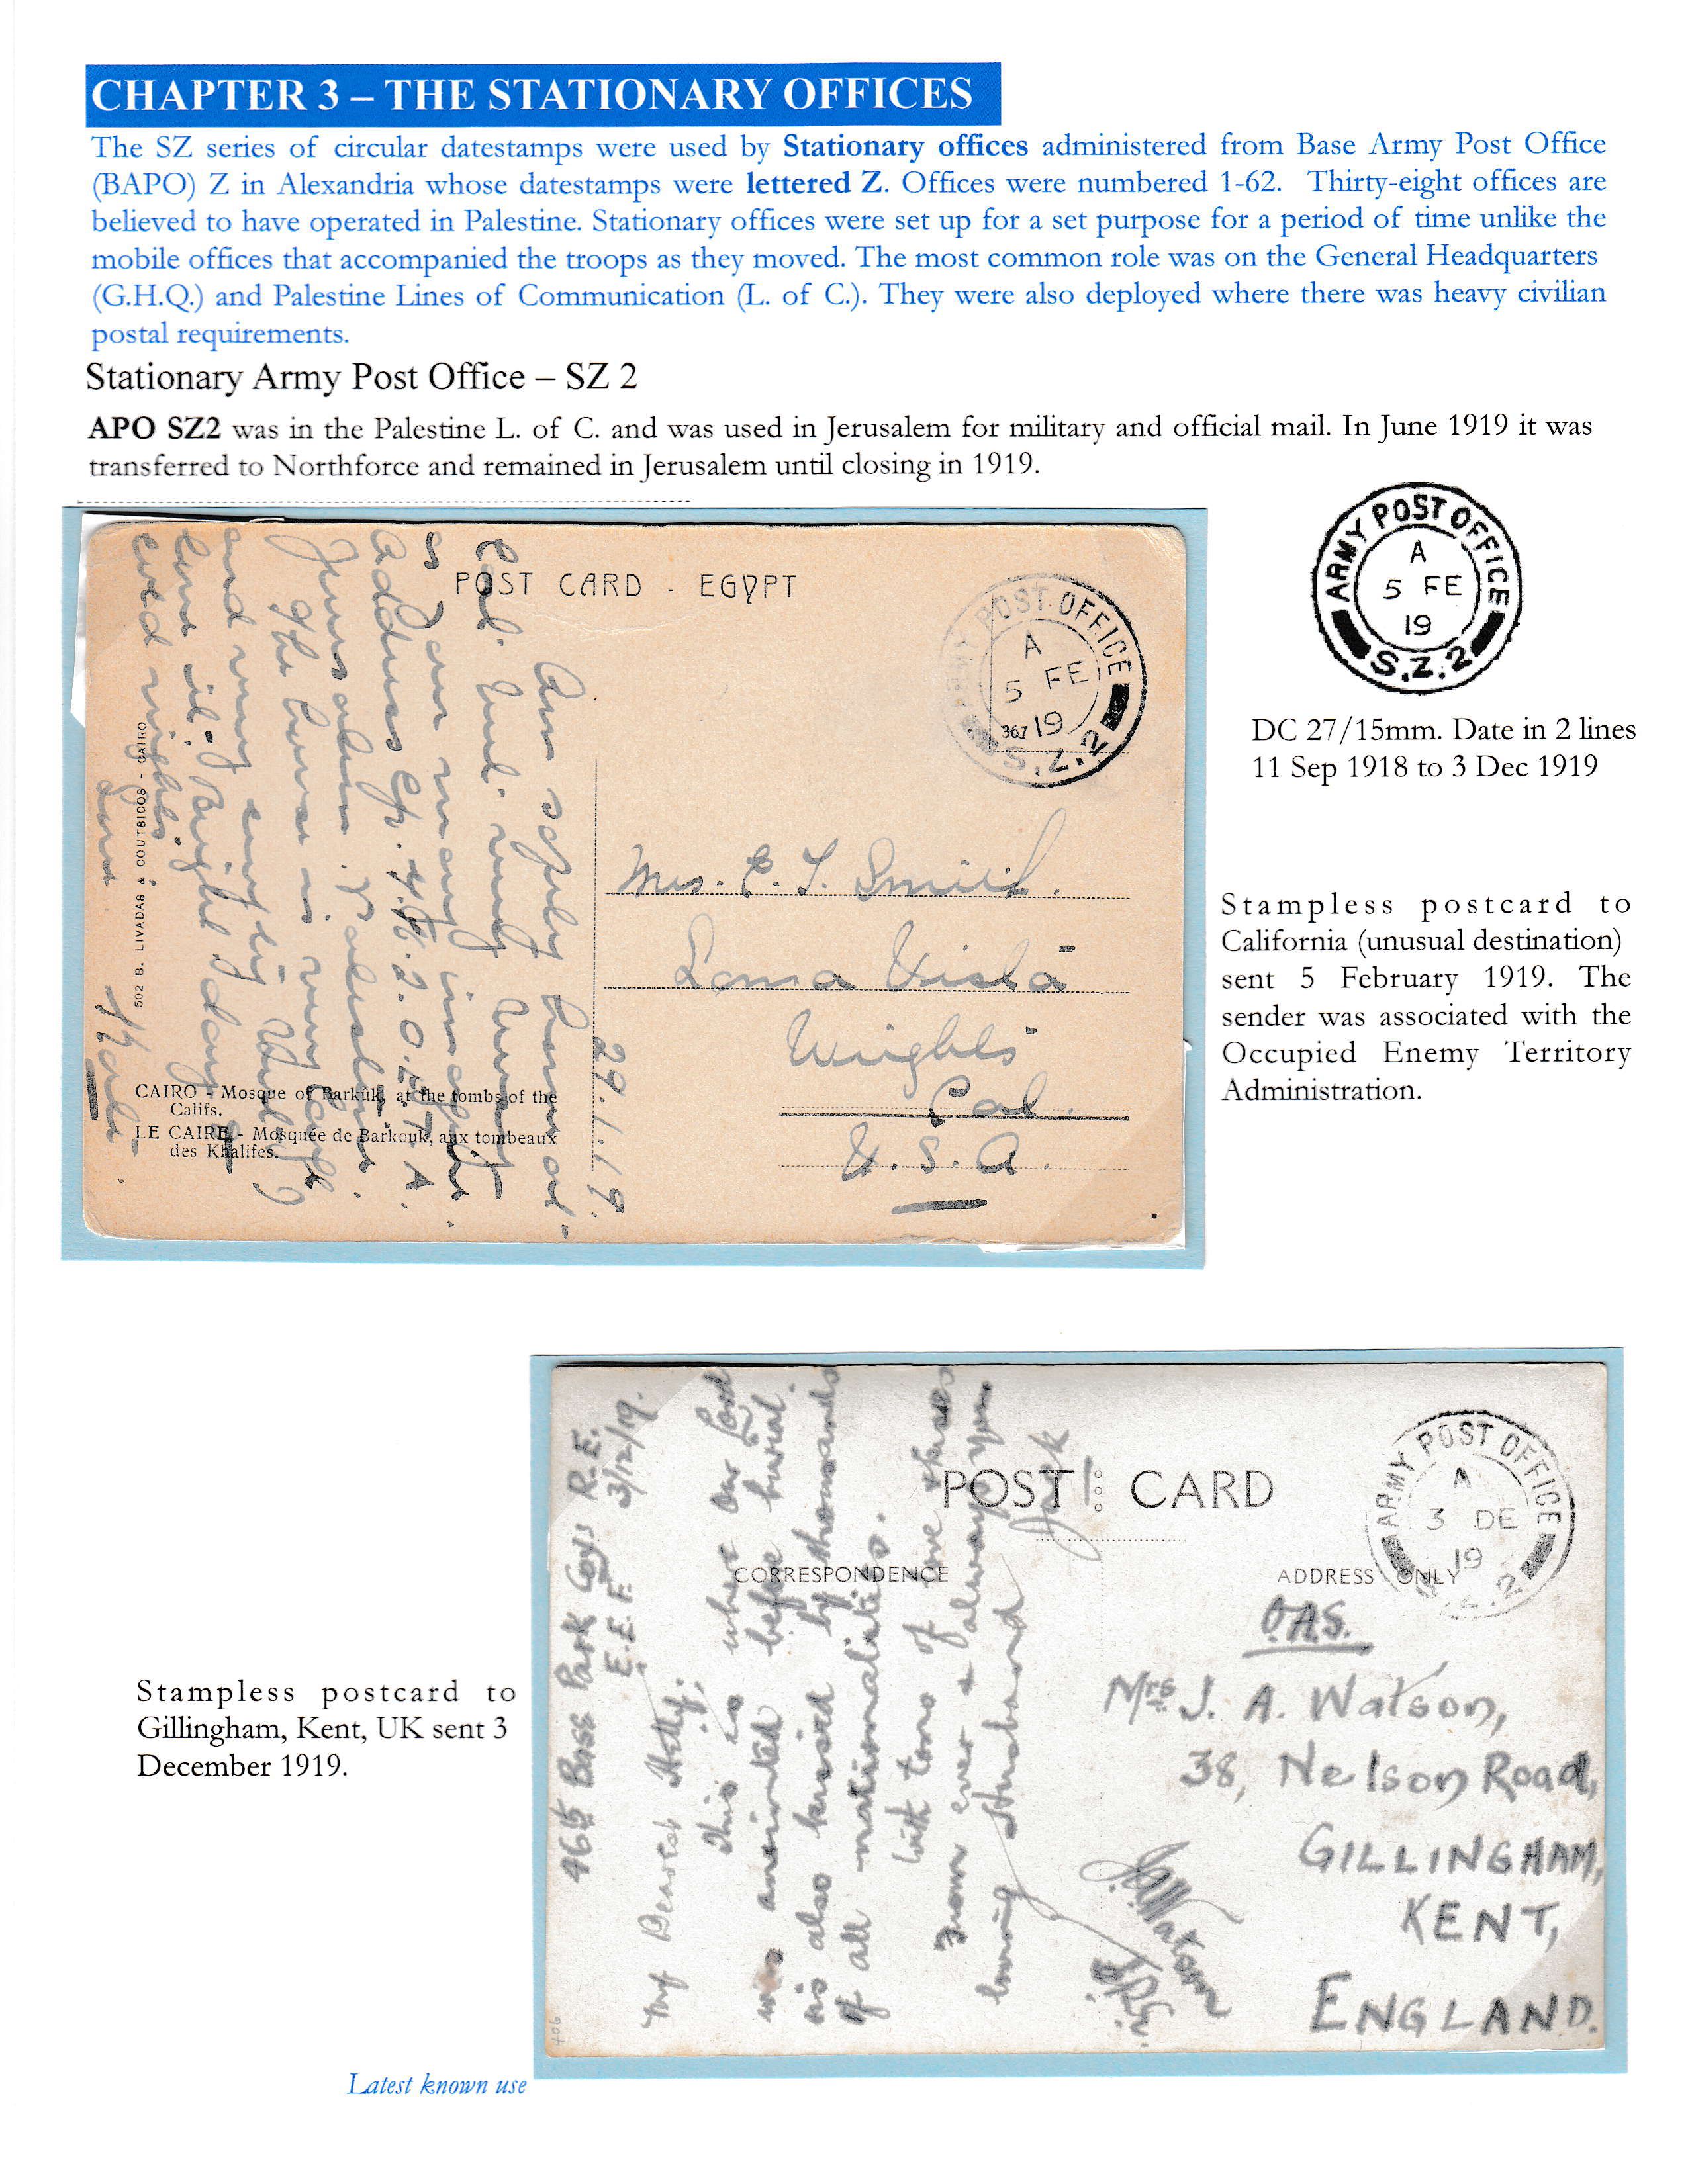 CHAPTER 3 – THE STATIONARY OFFICES
The SZ series of circular datestamps were used by Stationary offices administered from Base Army Post Office
(BAPO) Z in Alexandria whose datestamps were lettered Z. Offices were numbered 1-62. Thirty-eight offices are
believed to have operated in Palestine. Stationary offices were set up for a set purpose for a period of time unlike the
mobile offices that accompanied the troops as they moved. The most common role was on the General Headquarters
(G.H.Q.) and Palestine Lines of Communication (L. of C.). They were also deployed where there was heavy civilian
postal requirements.
Stationary Army Post Office – SZ 2
APO SZ2 was in the Palestine L. of C. and was used in Jerusalem for military and official mail. In June 1919 it was
transferred to Northforce and remained in Jerusalem until closing in 1919.
ARMY POST OFFICE
A
5 FE
19
S.Z.2
DC 27/15mm. Date in 2 lines
11 Sep 1918 to 3 Dec 1919
POST CARD - EGYPT
ARMY POST OFFICE
A
5 FE
367 19
S.Z.2
29.1.19.
Am safely home and
Cal. and
as I am
Address
Jerusalem. Palestine.
The
and very
Bright days &
cold nights
502 B. LIVADAS & COUTSICOS - CAIRO
CAIRO - Mosque of Barkûk, at the tombs of the
Califs.
LE CAIRE - Mosquée de Barkouk, aux tombeaux
des Khalifes.
Mrs. E. T. Smith.
Loma Vista
Wrights
Cal.
U.S.A.
Stampless postcard to
California (unusual destination)
sent 5 February 1919. The
sender was associated with the
Occupied Enemy Territory
Administration.
POST CARD
CORRESPONDENCE
ADDRESS ONLY
ARMY POST OFFICE
A
3 DE
19
S.Z.2
46th Base Park Coy. R.E.
E.E.F. 3/12/19.
My Dearest Hetty;
This is where our Lord
was anointed before burial.
is also kissed by thousands
of all nationalities.
With tons of love & kisses
from ever & always your
loving Husband
Jack
O.A.S.
Mrs J. A. Watson,
38, Nelson Road,
GILLINGHAM,
KENT,
ENGLAND.
J.A. Watson
706
Stampless postcard to
Gillingham, Kent, UK sent 3
December 1919.
Latest known use